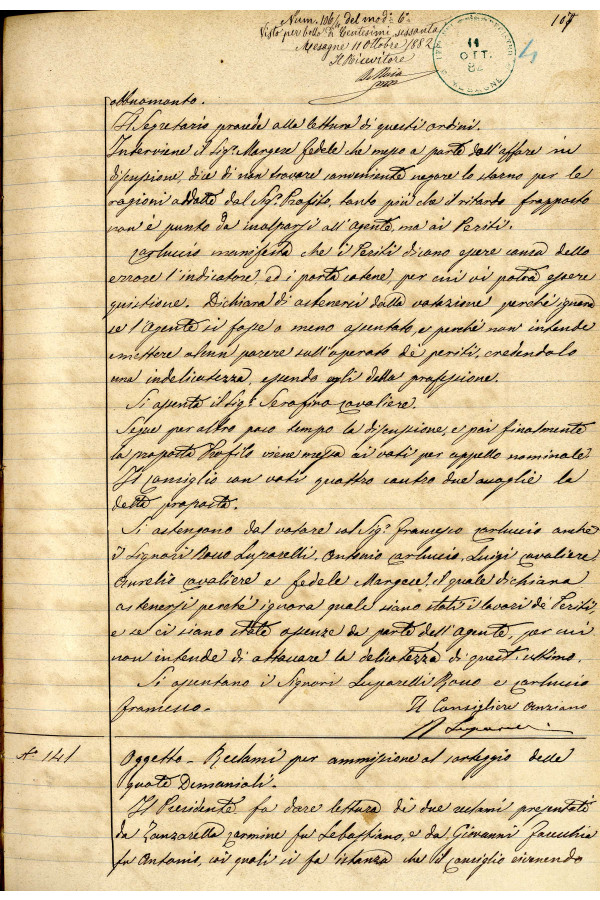 Num. 106/4 del mod.° 6°
Visto per bollo di Centesimi sessanta
Mesagne 11 Ottobre 1882
Il Ricevitore
107
11
OTT.
82
4
abbuonamento.
Il Segretario procede alla lettura di questi ordini.
Interviene il Sig.r Margese Fedele che messo a parte dell'affare in
discussione, dice di non trovare conveniente negare lo storno per le
ragioni addotte dal Sig.r Profilo, tanto più che il ritardo frapposto
non è punto da incolparsi all'Agente, ma ai Periti.
Carluccio manifesta che i Periti dicono essere causa dello
errore l'indicatore, ed i porta catene, per cui vi potrà essere
quistione. Dichiara di astenersi dalla votazione perché ignora
se l'Agente si fosse o meno assentato, e perché non intende
emettere alcun parere sull'operato dè periti, credendolo
una indelicatezza, essendo egli della professione.
Si assenta il Sig.r Serafino Cavaliere.
Segue per altro poco tempo la discussione, e poi finalmente
la proposta Profilo viene messa ai voti per appello nominale.
Il Consiglio con voti quattro contro due accoglie la
detta proposta.
Si astengono dal votare col Sig.r Francesco Carluccio anche
i Signori Rocco Luparelli, Antonio Carluccio, Luigi Cavaliere,
Aurelio Cavaliere e Fedele Margese, il quale dichiara
astenersi perché ignora quale siano stati i lavori dè Periti,
e se ci siano state assenze da parte dell'Agente, per cui
non intende di attaccare la delicatezza di quest'ultimo.
Si assentano i Signori Luparelli Rocco e Carluccio
Francesco.
Il Consigliere Anziano
N.° 141
Oggetto - Reclami per ammissione al sorteggio delle
quote Demaniali.
Il Presidente fa dare lettura di due reclami presentati
da Zanzarella Carmine fu Sebastiano, e da Giovanni
fu Antonio, coi quali si fa istanza che il Consiglio